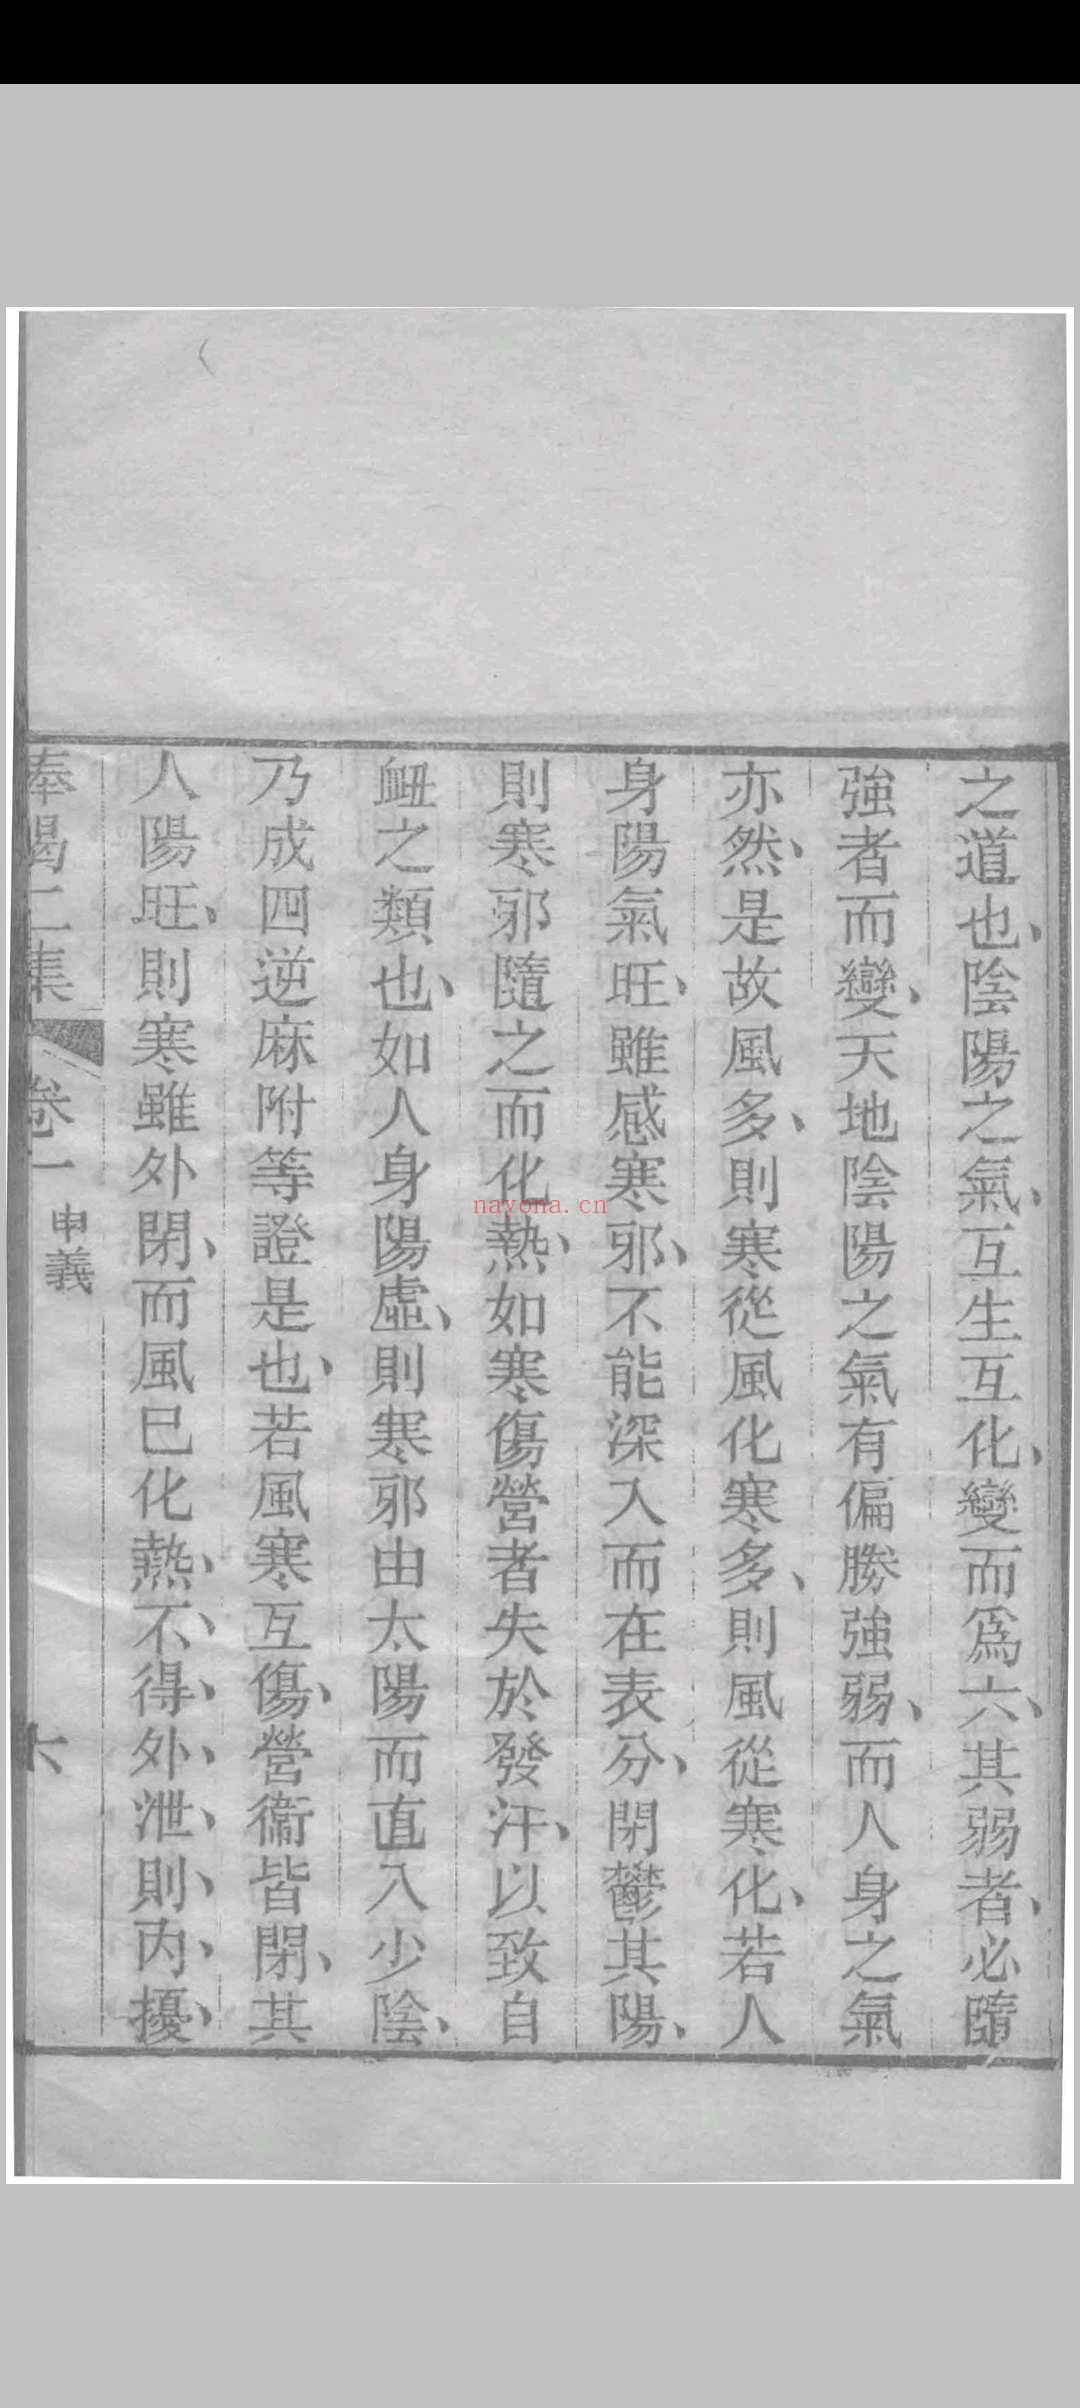 之道也、陰陽之氣、互生互化、變而爲六、其弱者、必隨
強者而變、天地陰陽之氣有偏勝強弱、而人身之氣
亦然、是故風多、則寒從風化寒多、則風從寒化、若人
身陽氣旺、雖感寒邪、不能深入而在表分、閉鬱其陽、
則寒邪隨之而化熱、如寒傷營者失於發汗、以致自
衄之類也、如人身陽虛、則寒邪由太陽而直入少陰、
乃成四逆麻附等證是也、若風寒互傷、營衞皆閉、其
人陽旺、則寒雖外閉、而風巳化熱、不、得、外、泄、則、內、擾、
卷一 申義 六
nayona.cn